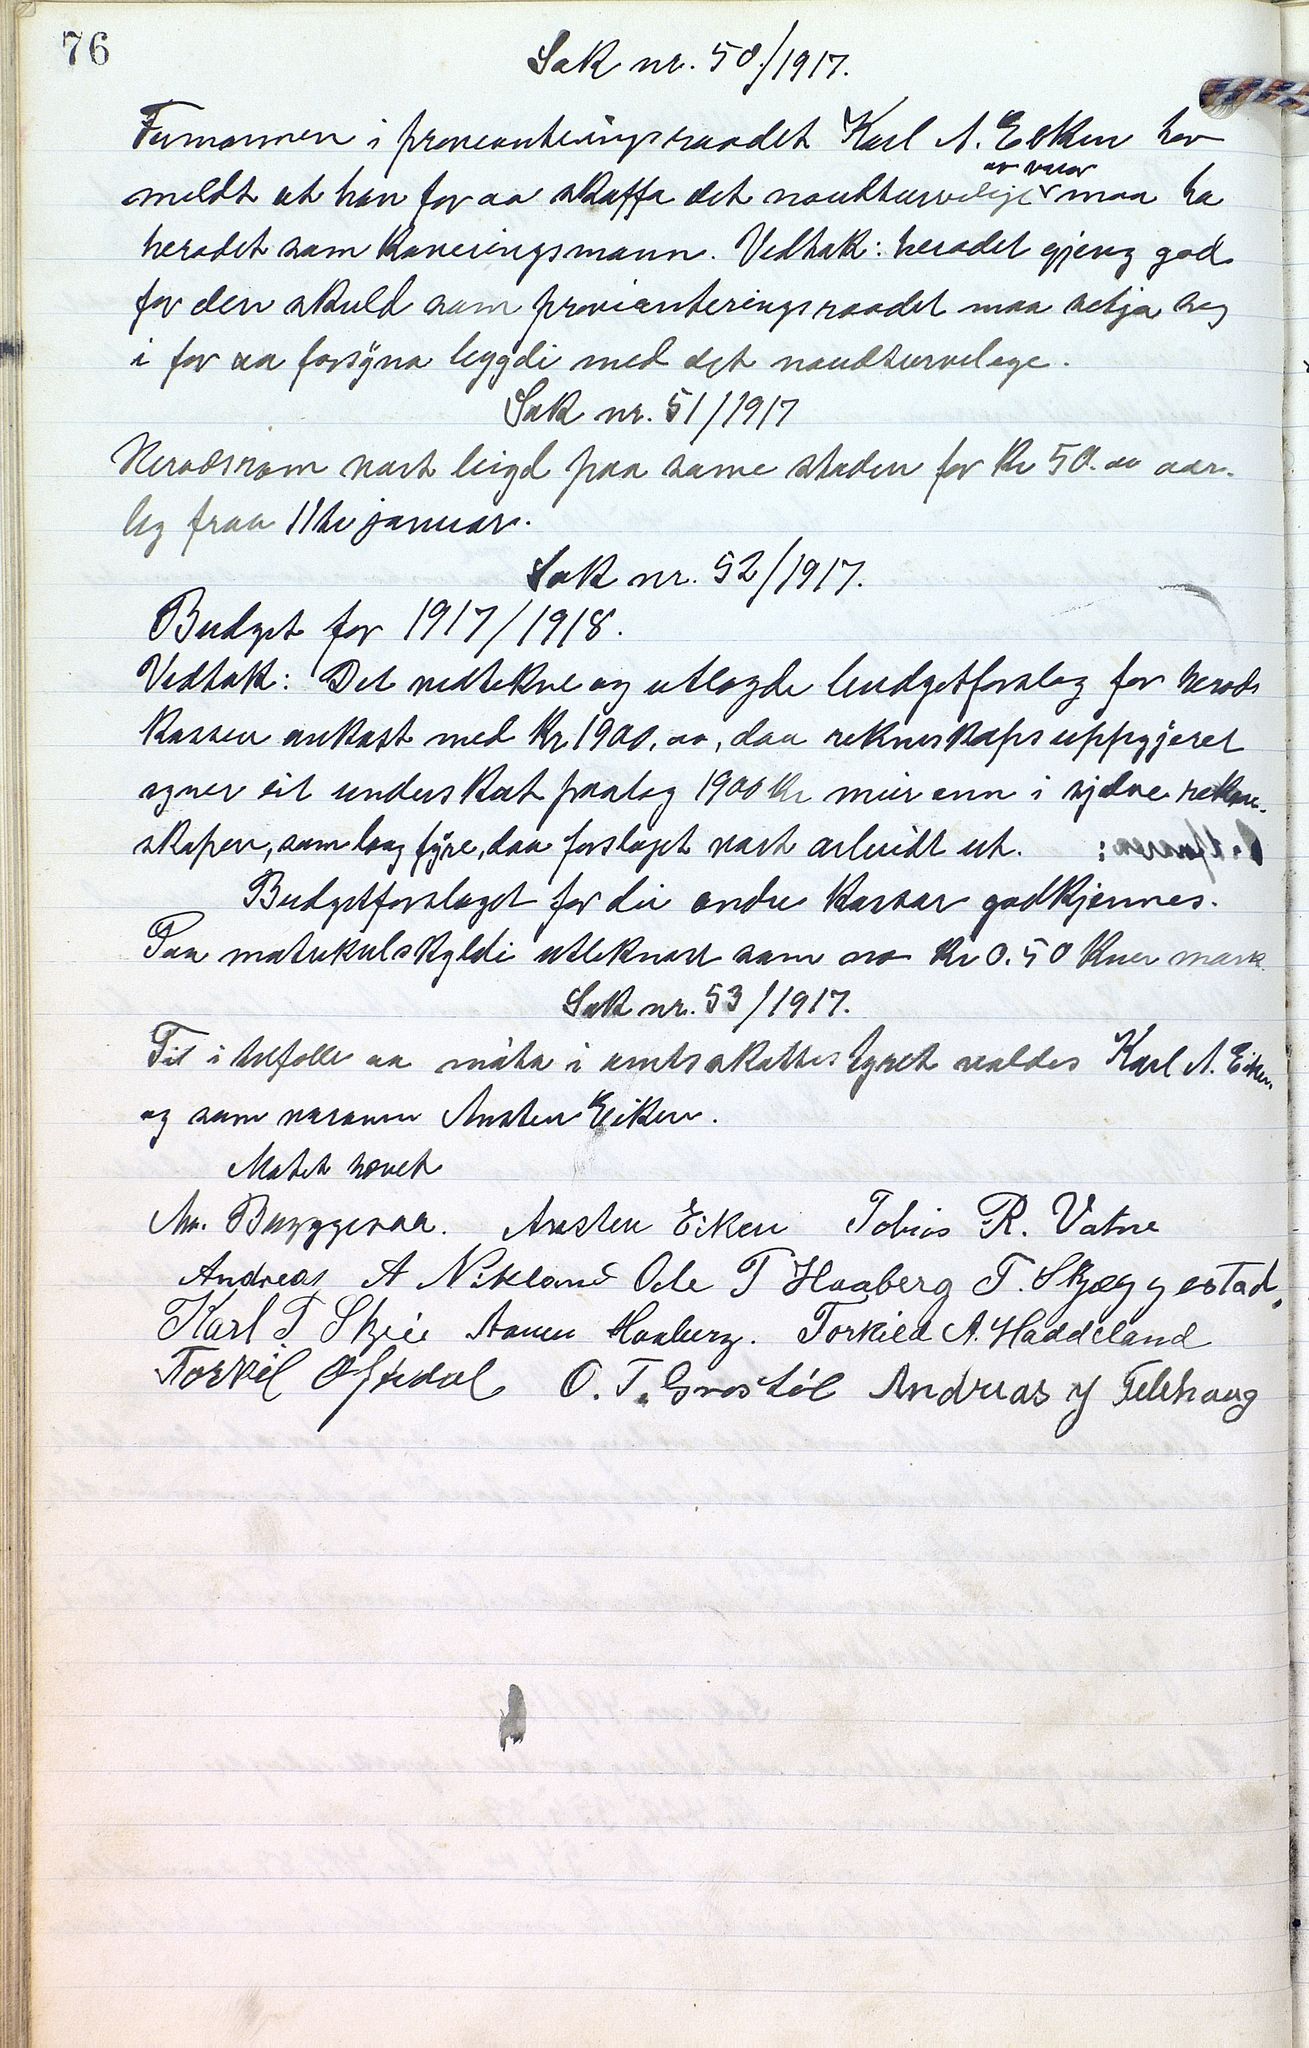 76
Sak nr. 50./1917.
Formannen i provianteringsraadet Karl A. Eiken hev
av varor
meldt at han for aa skaffa det naudturvelige maa ha
heradet som kaveringsmann. Vedtak: heradet gjeng god
for den skuld som provianteringsraadet maa setja seg
i for aa forsyna bygdi med det naudturvelege.
Sak nr. 51/1917
Heradsrom vart leigd paa same staden for Kr 50.00 aar-
leg fraa 11te januar.
Sak nr. 52/1917.
Budget for 1917/1918.
Vedtak: Det vedtekne og utlagde budgetforslag for herads
kassen aukast med Kr 1900,00, daa rekneskapsuppgjeret
syner eit underskot paalag 1900 Kr meir enn i sjølve rekne-
skapen, som laag fyre, daa forslaget vart arbeidt ut.
Budgetforslaget for dei andre kassar godkjennes.
Paa matrikulskyldi utleknast som no Kr 0.50 kver mark.
Sak nr. 53/1917.
Til i tilfelle aa møta i amtsskattestyret valdes Karl A. Eiken
og som varamann Austen Eiken.
Møtet hævet
Aa. Bryggesaa. Aasten Eiken Tobias R. Vatne
Andreas A Nikeland Ole T Haaberg T. Skjeggestad.
Karl T Skeie Aanen Haaberg. Torkield A. Haddeland
Torkel Øfjdal O. T. Grostøl Andreas J Telhaug